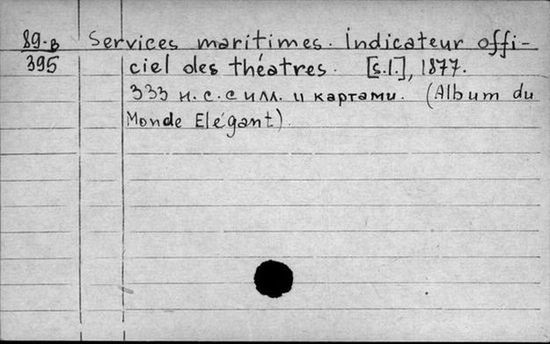 89-в Services maritimes. Indicateur offi-
395 ciel des théatres. [s.l.], 1877.
333 н. с. с илл. и картами. (Album du
Monde Elégant)